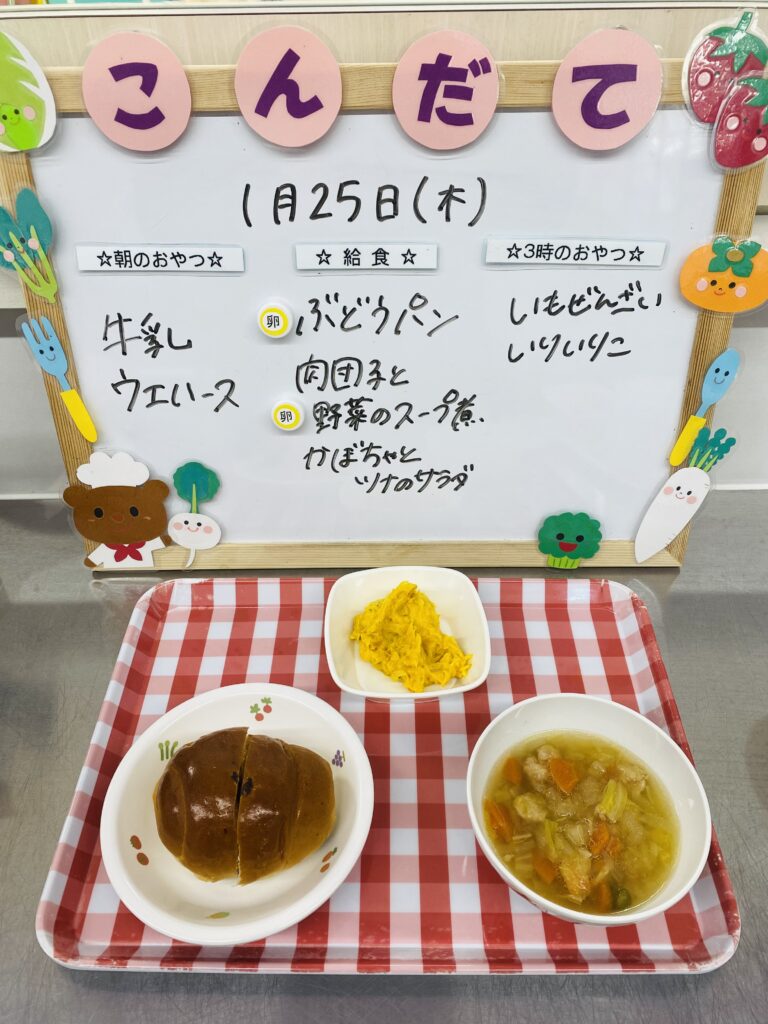 こんだて
1月25日(木)
☆朝のおやつ☆
牛乳
ウエハース
☆ 給 食 ☆
卵 ぶどうパン
肉団子と
卵 野菜のスープ煮
かぼちゃと
ツナのサラダ
☆3時のおやつ☆
いもぜんざい
いりいりこ